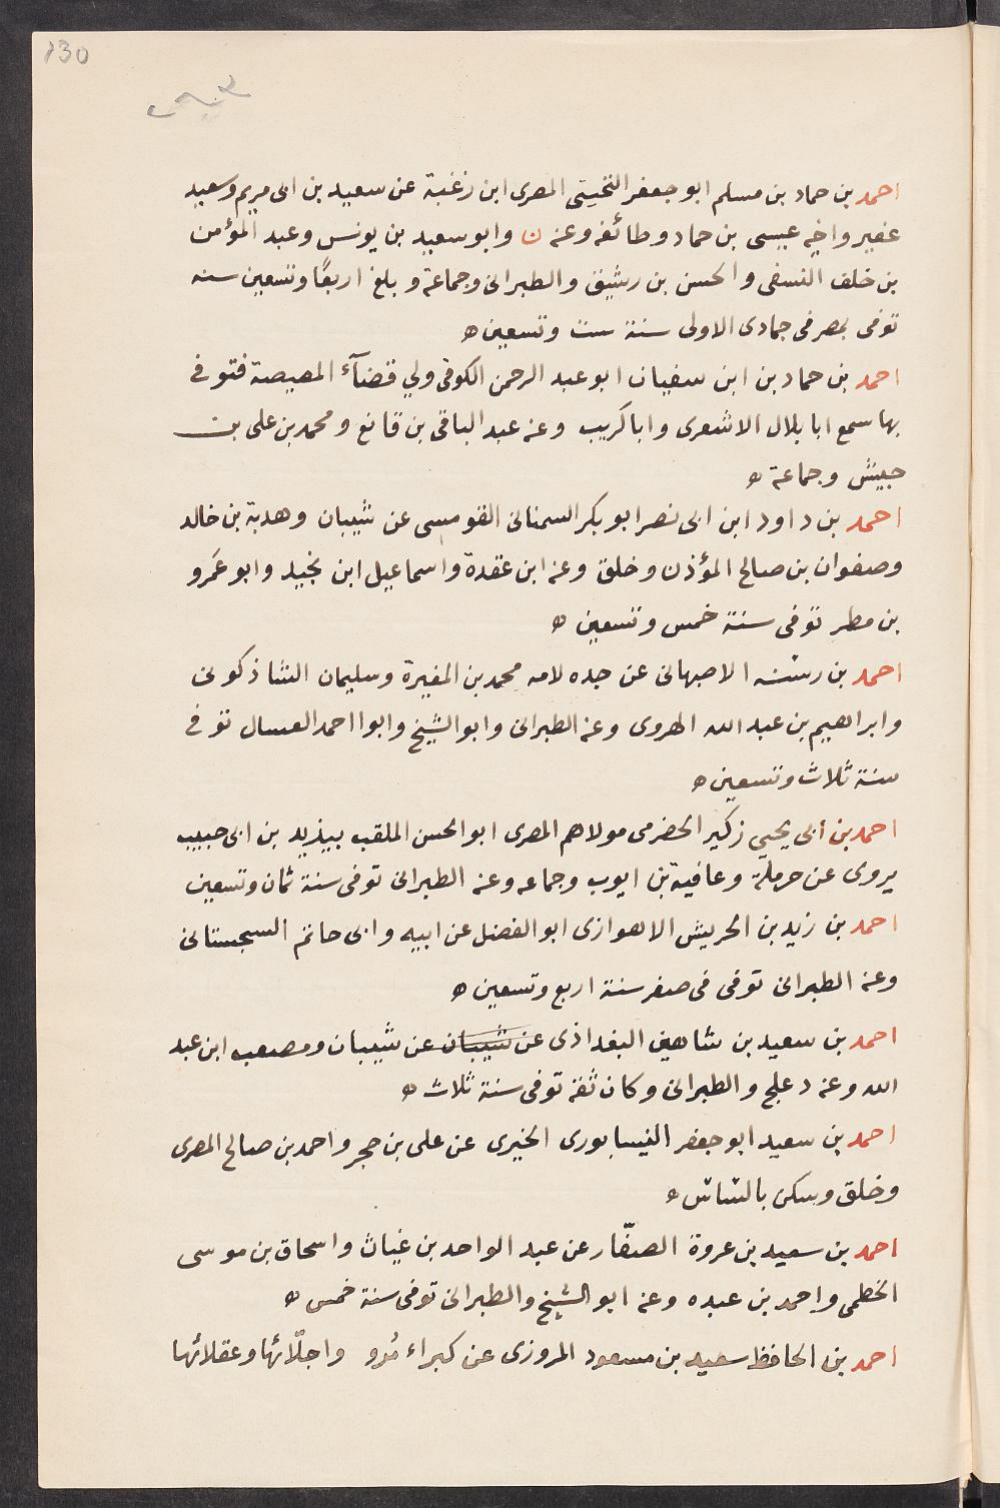 130
احمد بن حماد بن مسلم ابو جعفر التخيتى المصرى ابن زغبة عن سعيد بن ابى مريم وسعيد
عفير واخيه عيسى بن حماد وطائفه وعنه ن وابو سعيد بن يونس وعبد المؤمن
بن خلف النسفى والحسن بن رشيق والطبرانى وجماعة وبلغ اربعًا وتسعين سنه
توفى بمصر فى جمادى الاولى سنة ست وتسعين ه
احمد بن حماد بن ابن سفيان ابو عبد الرحمن الكوفى ولي قضآء المصيصة فتوفى
بها سمع ابا بلال الاشعرى وابا كريب وعنه عبد الباقى بن قانع ومحمد بن على بن
حبيش وجماعة ه
احمد بن داود ابن ابى نصر ابو بكر السمنانى القومسى عن شيبان وهدبة بن خالد
وصفوان بن صالح المؤذن وخلق وعنه ابن عقدة واسماعيل ابن نجيد وابو عَمرو
بن مطر توفى سنة خمس وتسعين ه
احمد بن رسته الاصبهانى عن جده لامه محمد بن المغيرة وسليمان الشاذكونى
وابراهيم بن عبد الله الهروى وعنه الطبرانى وابو الشيخ وابوا احمد العسال توفى
سنة ثلاث وتسعين ه
احمد بن أبى يحيي زكير الحضرمى مولاهم المصرى ابو الحسن الملقب بيزيد بن ابى حبيب
يروى عن حرملة وعافية بن ايوب وجماعه وعنه الطبرانى توفى سنة ثمان وتسعين
احمد بن زيد بن الحريش الاهوازى ابو الفضل عن ابيه وابى حاتم السجستانى
وعنه الطبرانى توفى فى صفر سنة اربع وتسعين ه
احمد بن سعيد بن شاهين البغداذى عن شيبان عن شيبان ومصعب ابن عبد
الله وعنه دعلج والطبرانى وكان ثقه توفى سنة ثلاث ه
احمد بن سعيد ابو جعفر النيسابورى الحيرى عن على بن حجر واحمد بن صالح المصرى
وخلق وسكن بالشاش ه
احمد بن سعيد بن عروة الصفّار عن عبد الواحد بن غياث واسحاق بن موسى
الخطمى واحمد بن عبده وعنه ابو الشيخ والطبرانى توفى سنة خمس ه
احمد بن الحافظ سعيد بن مسعود المروزى عن كبراء مَرو واجلّائها وعقلائها